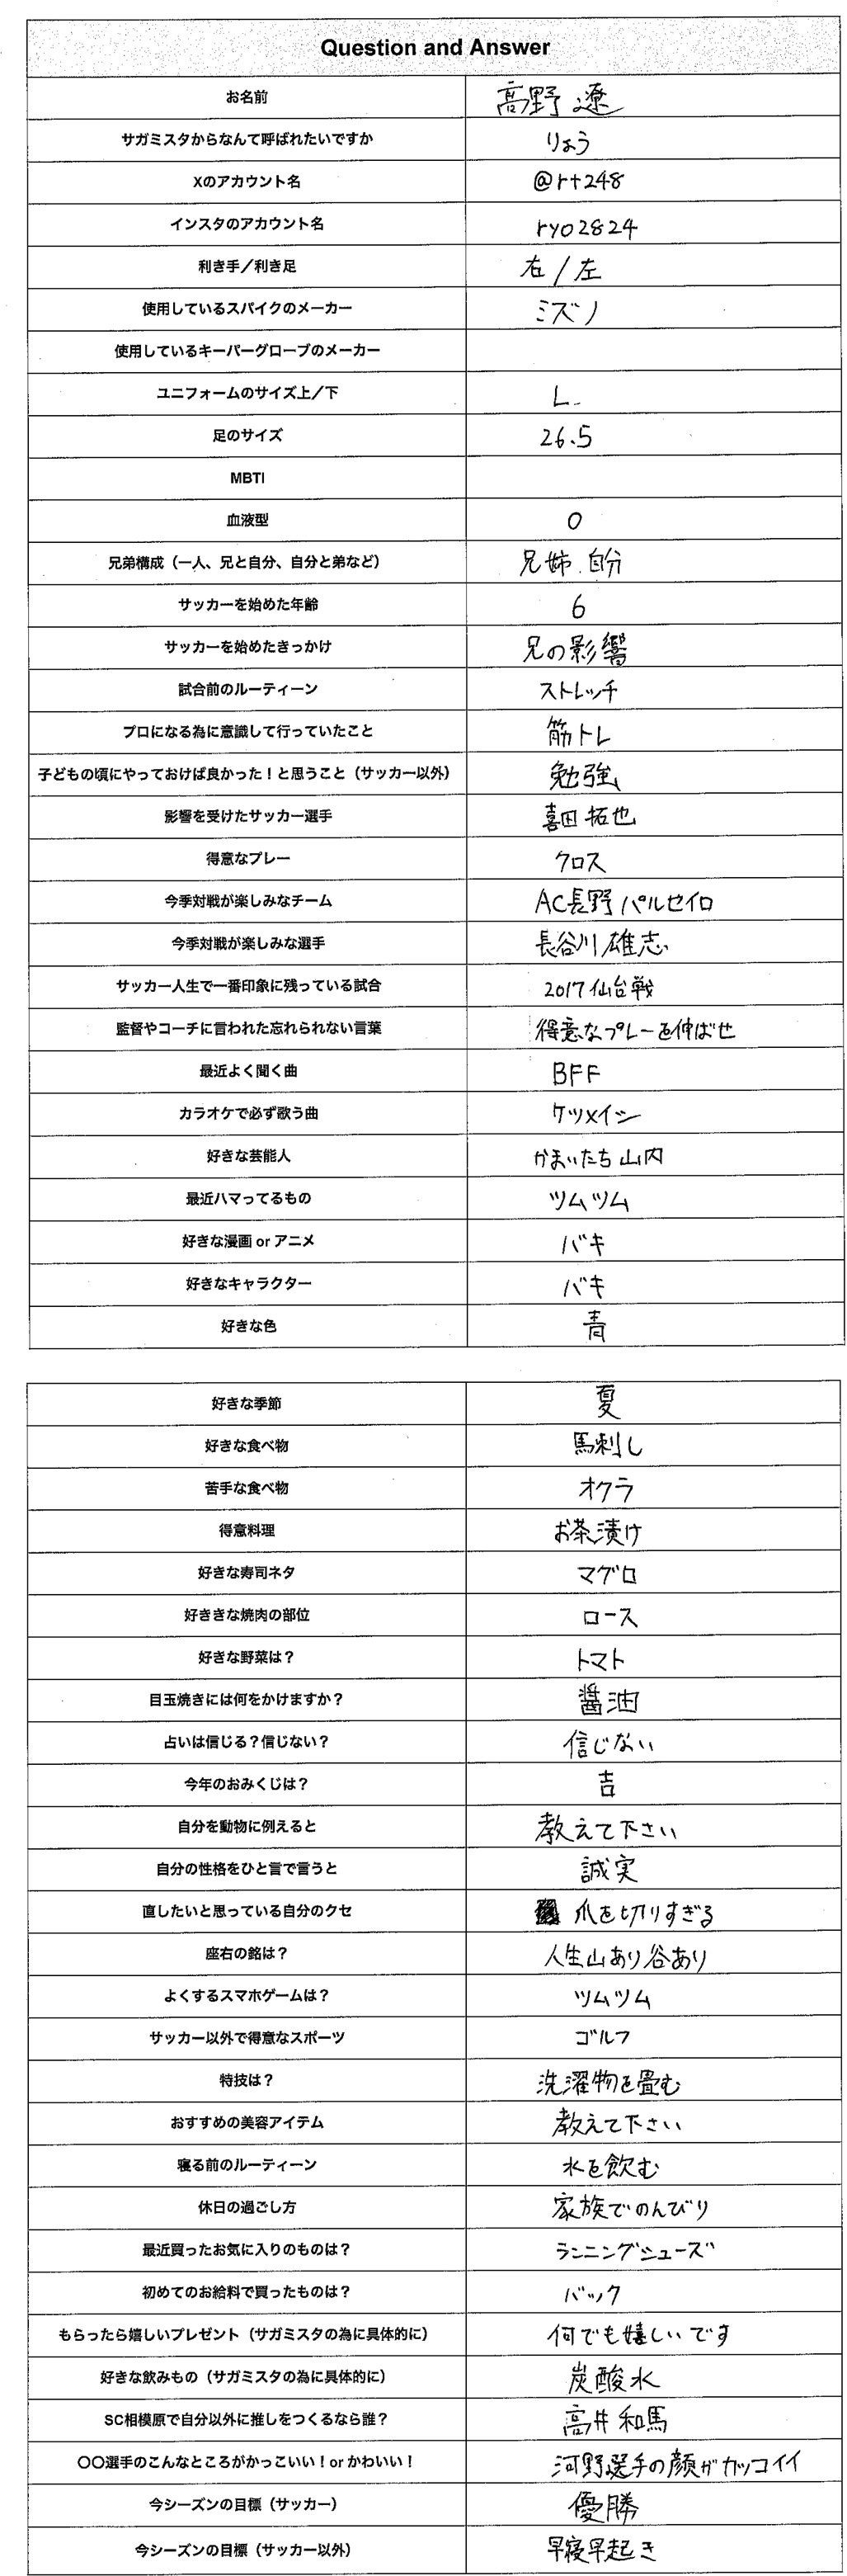 Question and Answer
お名前 高野 遼
サガミスタからなんて呼ばれたいですか りょう
Xのアカウント名 @rt248
インスタのアカウント名 ryo2824
利き手／利き足 右／左
使用しているスパイクのメーカー ミズノ
使用しているキーパーグローブのメーカー
ユニフォームのサイズ上／下 L
足のサイズ 26.5
MBTI
血液型 O
兄弟構成（一人、兄と自分、自分と弟など） 兄 姉 自分
サッカーを始めた年齢 6
サッカーを始めたきっかけ 兄の影響
試合前のルーティーン ストレッチ
プロになる為に意識して行っていたこと 筋トレ
子どもの頃にやっておけば良かった！と思うこと（サッカー以外） 勉強
影響を受けたサッカー選手 喜田 拓也
得意なプレー クロス
今季対戦が楽しみなチーム AC長野パルセイロ
今季対戦が楽しみな選手 長谷川 雄志
サッカー人生で一番印象に残っている試合 2017 仙台戦
監督やコーチに言われた忘れられない言葉 得意なプレーを伸ばせ
最近よく聞く曲 BFF
カラオケで必ず歌う曲 ケツメイシ
好きな芸能人 かまいたち 山内
最近ハマってるもの ツムツム
好きな漫画 or アニメ バキ
好きなキャラクター バキ
好きな色 青
好きな季節 夏
好きな食べ物 馬刺し
苦手な食べ物 オクラ
得意料理 お茶漬け
好きな寿司ネタ マグロ
好ききな焼肉の部位 ロース
好きな野菜は？ トマト
目玉焼きには何をかけますか？ 醤油
占いは信じる？信じない？ 信じない
今年のおみくじは？ 吉
自分を動物に例えると 教えて下さい
自分の性格をひと言で言うと 誠実
直したいと思っている自分のクセ 爪を切りすぎる
座右の銘は？ 人生山あり谷あり
よくするスマホゲームは？ ツムツム
サッカー以外で得意なスポーツ ゴルフ
特技は？ 洗濯物を畳む
おすすめの美容アイテム 教えて下さい
寝る前のルーティーン 水を飲む
休日の過ごし方 家族でのんびり
最近買ったお気に入りのものは？ ランニングシューズ
初めてのお給料で買ったものは？ バック
もらったら嬉しいプレゼント（サガミスタの為に具体的に） 何でも嬉しいです
好きな飲みもの（サガミスタの為に具体的に） 炭酸水
SC相模原で自分以外に推しをつくるなら誰？ 高井 和馬
〇〇選手のこんなところがかっこいい！or かわいい！ 河野選手の顔がカッコイイ
今シーズンの目標（サッカー） 優勝
今シーズンの目標（サッカー以外） 早寝早起き